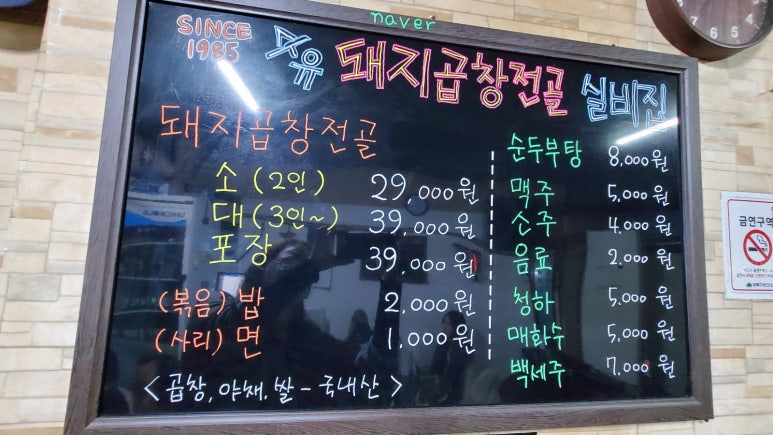 naver
SINCE
1985
자유 돼지곱창전골 실비집
돼지곱창전골
소 (2인) 29,000원
대 (3인~) 39,000원
포장 39,000원
(볶음) 밥 2,000원
(사리) 면 1,000원
<곱창, 야채, 쌀 - 국내산>
순두부탕 8,000원
맥주 5,000원
소주 4,000원
음료 2,000원
청하 5,000원
매화수 5,000원
백세주 7,000원
금연구역